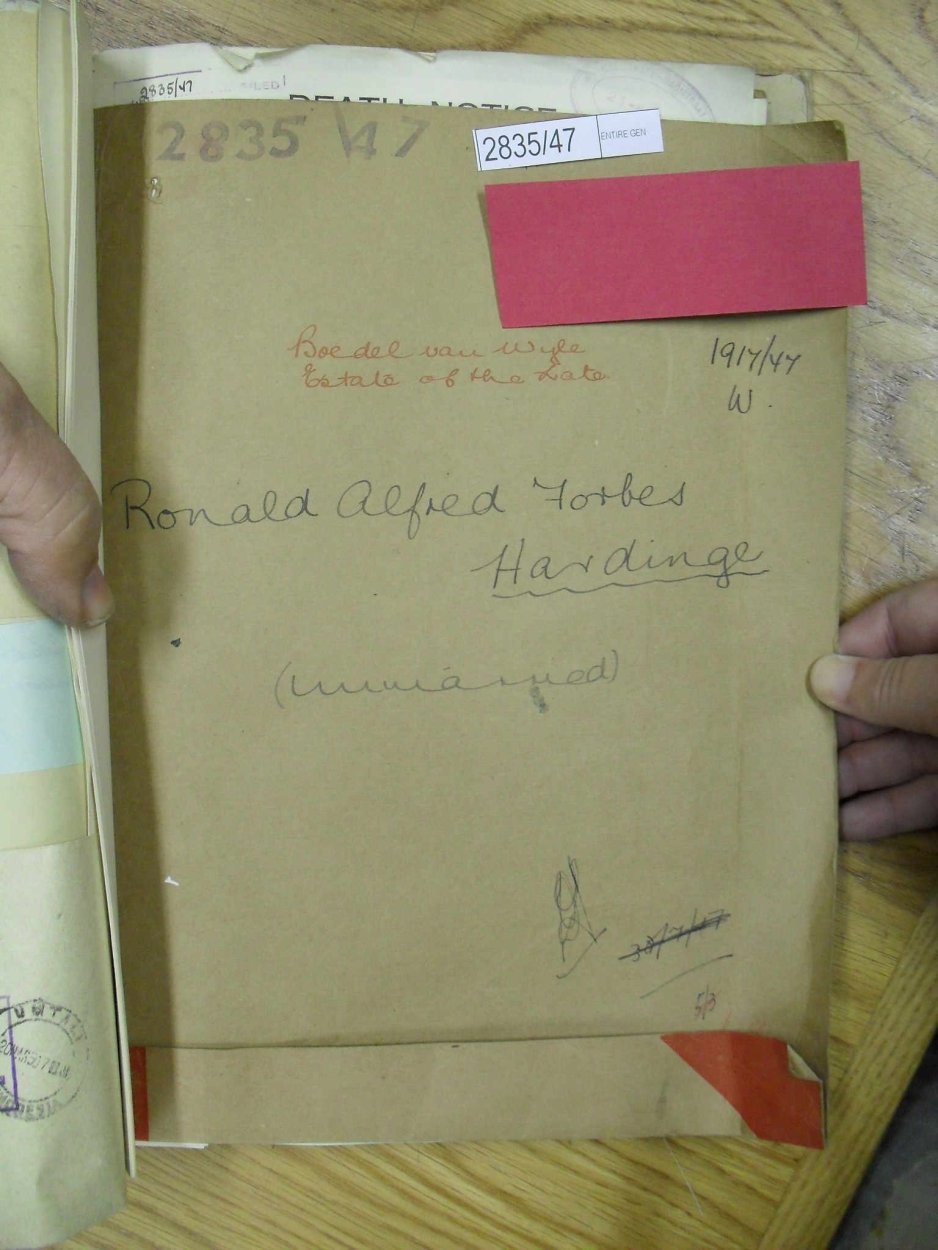 2835/47
FILED
DEATH NOTICE
2835/47
2835/47
ENTIRE GEN
8
Boedel van Wyle
Estate of the Late
1917/47
W.
Ronald Alfred Forbes
Hardinge
(Unmarried)
30/7/47
5/3
UMTALI